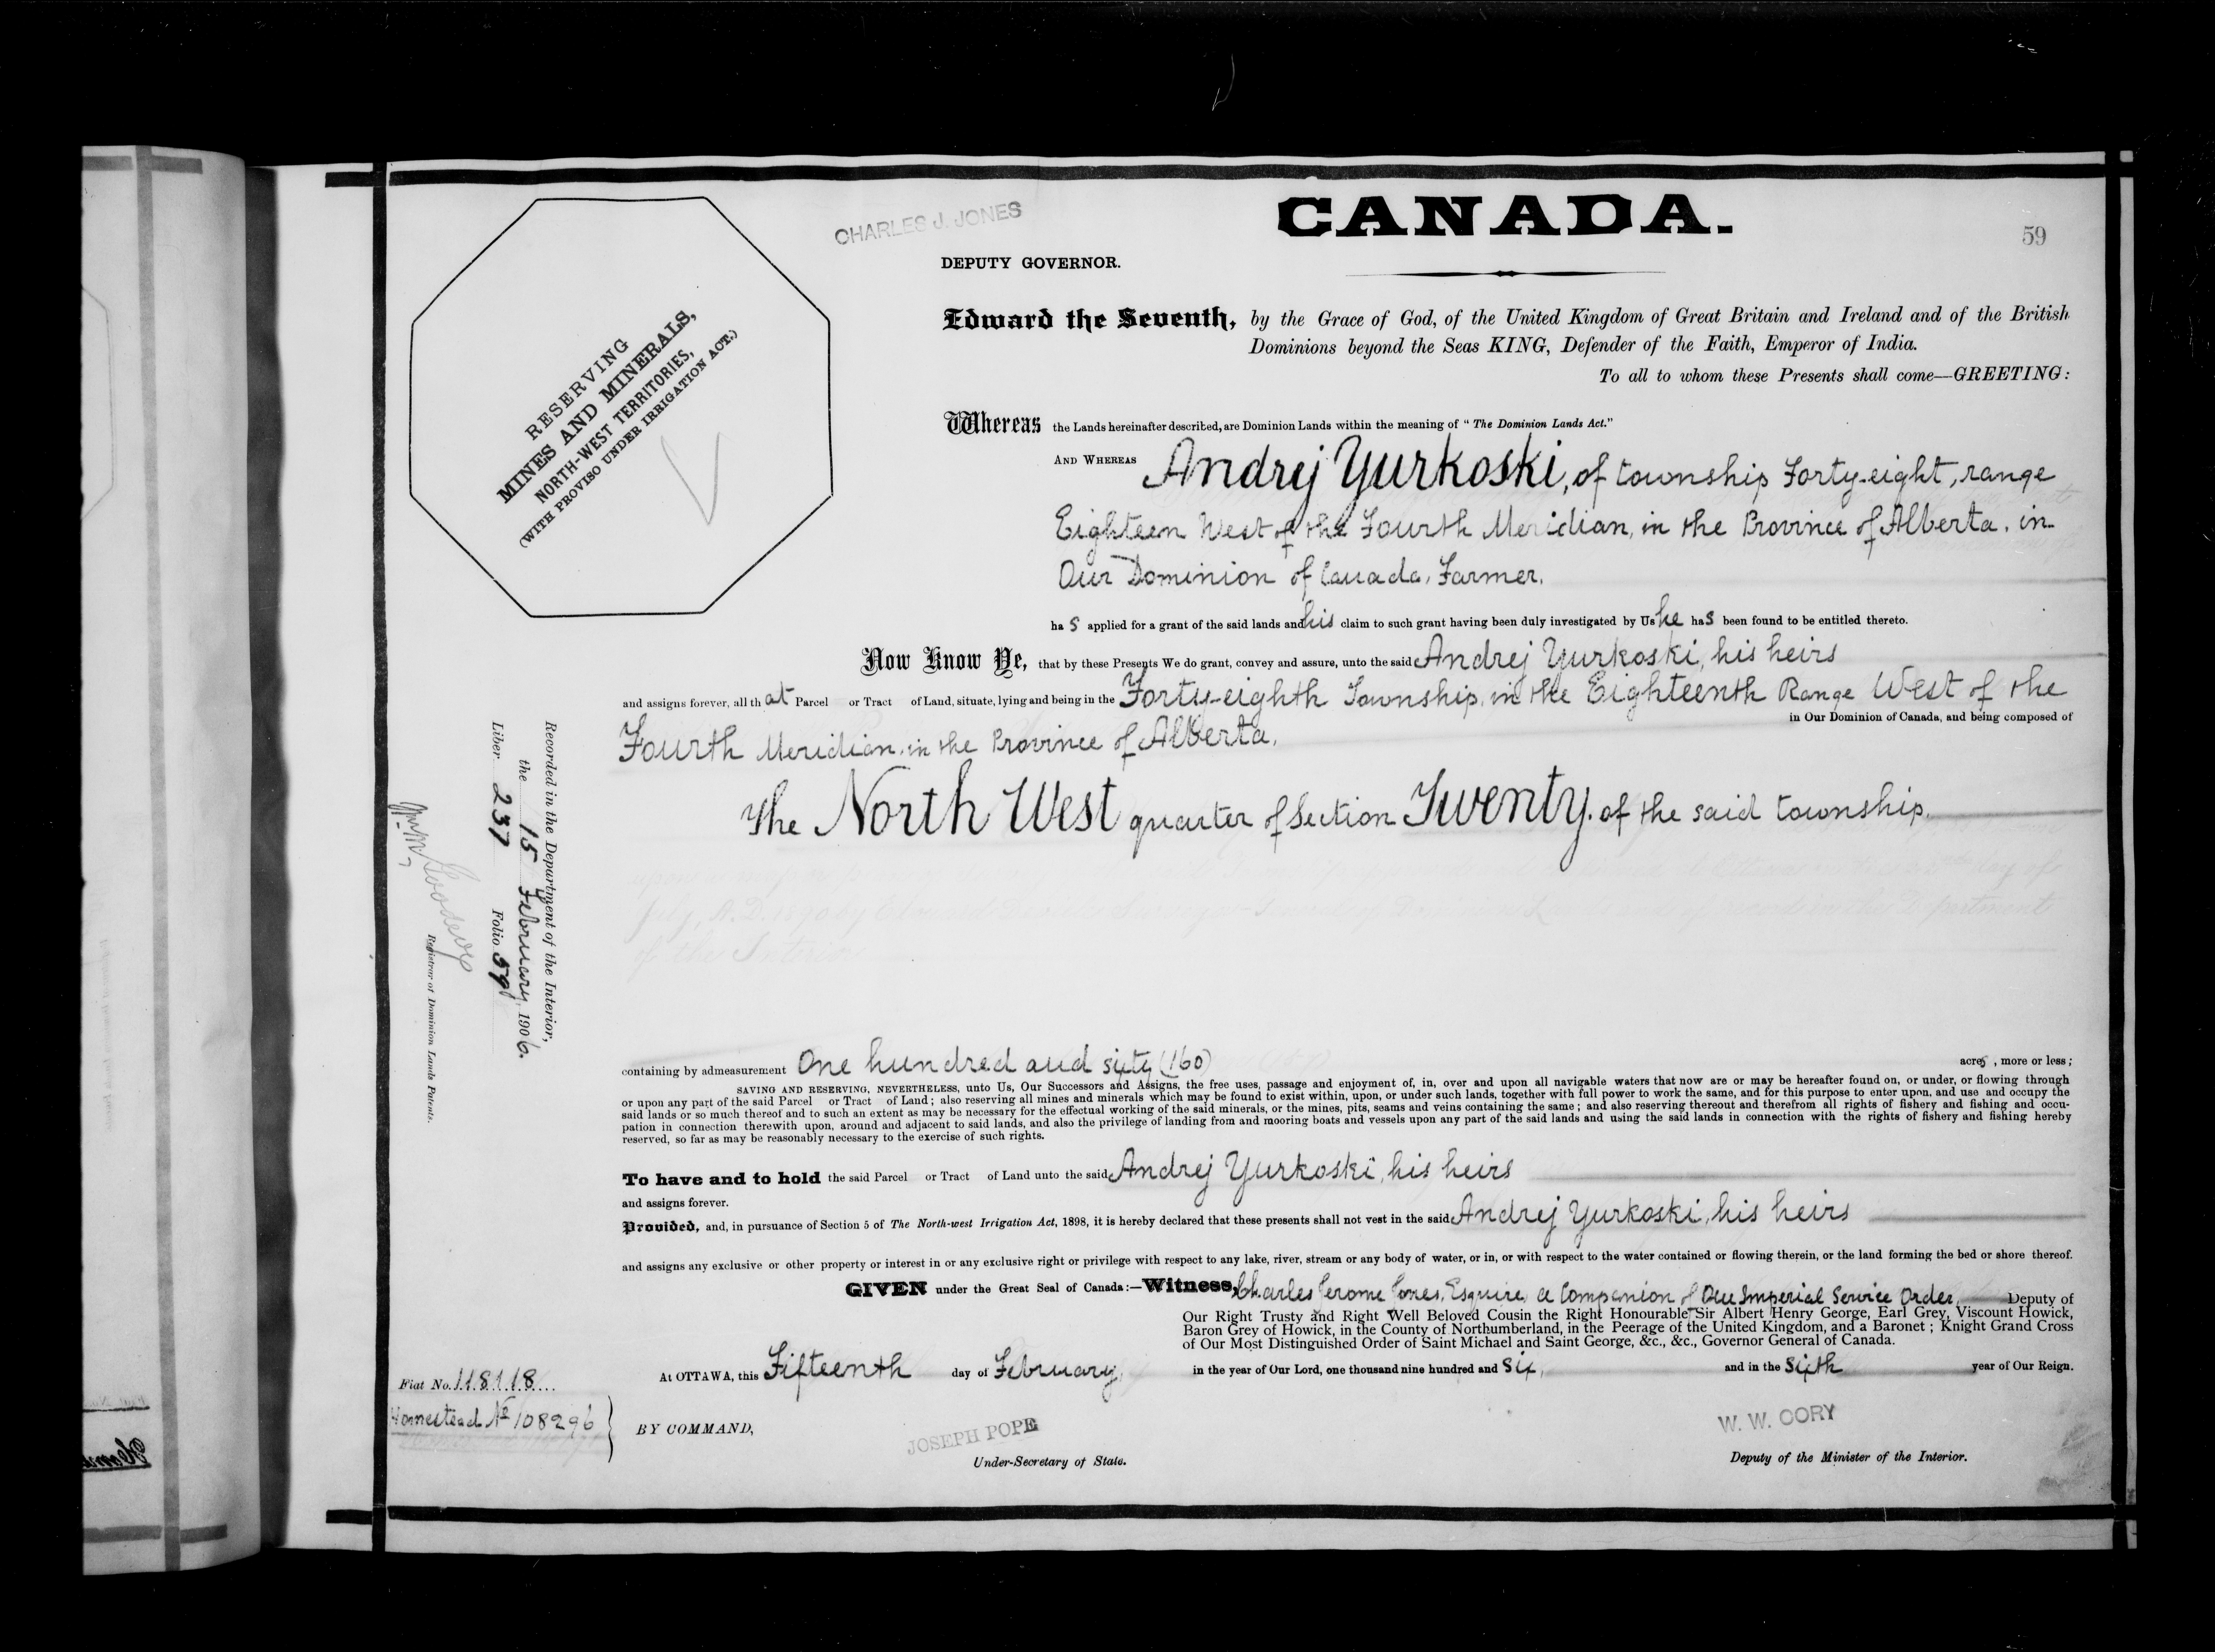 CHARLES J. JONES
CANADA.
59
DEPUTY GOVERNOR.
RESERVING
MINES AND MINERALS,
NORTH-WEST TERRITORIES,
(WITH PROVISO UNDER IRRIGATION ACT.)
Edward the Seventh, by the Grace of God, of the United Kingdom of Great Britain and Ireland and of the British
Dominions beyond the Seas KING, Defender of the Faith, Emperor of India.
To all to whom these Presents shall come—GREETING:
Whereas the Lands hereinafter described, are Dominion Lands within the meaning of "The Dominion Lands Act."
AND WHEREAS Andrej Yurkoski, of township Forty-eight, range
Eighteen West of the Fourth Meridian, in the Province of Alberta, in
Our Dominion of Canada, Farmer,
has applied for a grant of the said lands and his claim to such grant having been duly investigated by Us he has been found to be entitled thereto.
Now Know Ye, that by these Presents We do grant, convey and assure, unto the said Andrej Yurkoski, his heirs
and assigns forever, all that Parcel or Tract of Land, situate, lying and being in the Forty-eighth Township, in the Eighteenth Range West of the
in Our Dominion of Canada, and being composed of
Fourth Meridian, in the Province of Alberta,
The North West quarter of Section Twenty, of the said township,
Recorded in the Department of the Interior,
the 15 February, 1906.
Liber 237 Folio 59
Registrar of Dominion Lands Patents.
containing by admeasurement One hundred and sixty (160) acres, more or less;
SAVING AND RESERVING, NEVERTHELESS, unto Us, Our Successors and Assigns, the free uses, passage and enjoyment of, in, over and upon all navigable waters that now are or may be hereafter found on, or under, or flowing through
or upon any part of the said Parcel or Tract of Land; also reserving all mines and minerals which may be found to exist within, upon, or under such lands, together with full power to work the same, and for this purpose to enter upon, and use and occupy the
said lands or so much thereof and to such an extent as may be necessary for the effectual working of the said minerals, or the mines, pits, seams and veins containing the same; and also reserving thereout and therefrom all rights of fishery and fishing and occu-
pation in connection therewith upon, around and adjacent to said lands, and also the privilege of landing from and mooring boats and vessels upon any part of the said lands and using the said lands in connection with the rights of fishery and fishing hereby
reserved, so far as may be reasonably necessary to the exercise of such rights.
To have and to hold the said Parcel or Tract of Land unto the said Andrej Yurkoski, his heirs
and assigns forever.
Provided, and, in pursuance of Section 5 of The North-west Irrigation Act, 1898, it is hereby declared that these presents shall not vest in the said Andrej Yurkoski, his heirs
and assigns any exclusive or other property or interest in or any exclusive right or privilege with respect to any lake, river, stream or any body of water, or in, or with respect to the water contained or flowing therein, or the land forming the bed or shore thereof.
GIVEN under the Great Seal of Canada:—Witness, Charles Jerome Jones, Esquire, a Companion of Our Imperial Service Order, Deputy of
Our Right Trusty and Right Well Beloved Cousin the Right Honourable Sir Albert Henry George, Earl Grey, Viscount Howick,
Baron Grey of Howick, in the County of Northumberland, in the Peerage of the United Kingdom, and a Baronet; Knight Grand Cross
of Our Most Distinguished Order of Saint Michael and Saint George, &c., &c., Governor General of Canada.
At OTTAWA, this Fifteenth day of February, in the year of Our Lord, one thousand nine hundred and six, and in the Sixth year of Our Reign.
Fiat No. 118118
Homestead No 108296
BY COMMAND,
JOSEPH POPE
Under-Secretary of State.
W. W. CORY
Deputy of the Minister of the Interior.